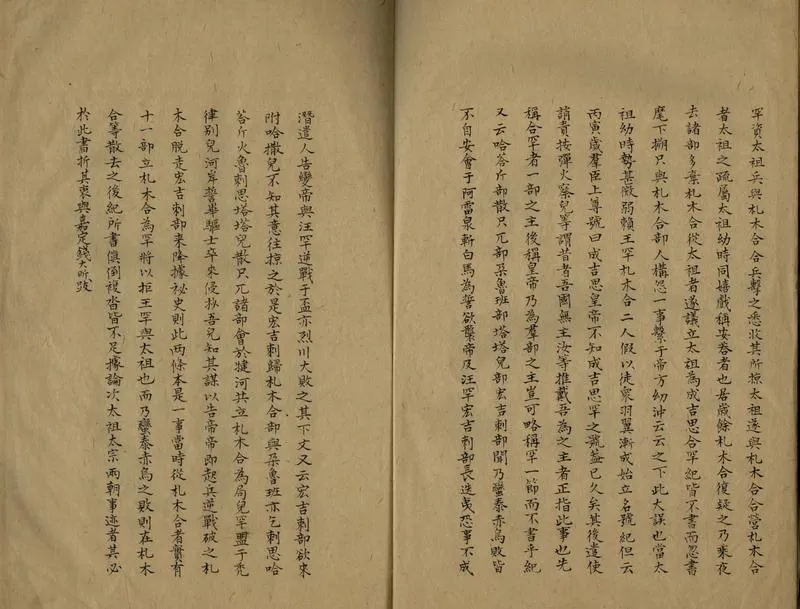 罕資太祖兵與札木合合兵擊之悉收其所掠太祖遂與札木合合營札木合
者太祖之疏屬太祖幼時同嬉戲稱安荅者也居歲餘札木合復疑之乃乘夜
去諸部多棄札木合從太祖者遂議立太祖為成吉思合罕紀皆不書而忽書
麾下搠只與札木合部人構怨一事繫于帝方幼沖云云之下此大誤也當太
祖幼時勢甚微弱賴王罕札木合二人假以徒眾羽翼漸成始立名號紀但云
丙寅歲羣臣上尊號曰成吉思皇帝不知成吉思罕之號蓋已久矣其後遣使
誚責按彈火察兒等謂昔者吾國無主汝等推戴吾為之主者正指此事也先
稱合罕者一部之主後稱皇帝乃為羣部之主豈可略稱罕一節而不書乎紀
又云哈荅斤部散只兀部朶魯班部塔塔兒部宏吉剌部聞乃蠻泰赤烏敗皆
不自安會于阿雷泉斬白馬為誓欲襲帝及汪罕宏吉剌部長迭夷恐事不成
潛遣人告變帝與汪罕逆戰于盃亦烈川大敗之其下文又云宏吉剌部欲來
附哈撒兒不知其意往掠之於是宏吉剌歸札木合部與朶魯班亦乞剌思哈
荅斤火魯剌思塔塔兒散只兀諸部會於犍河共立札木合為局兒罕盟于禿
律別兒河岸誓畢驅士卒來侵抄吾兒知其謀以告帝帝即起兵逆戰破之札
木合脫走宏吉剌部來降據祕史則此兩條本是一事當時從札木合者實有
十一部立札木合為罕將以拒王罕與太祖也而乃蠻泰赤烏之敗則在札木
合等散去之後紀所書傎倒複沓皆不足據論次太祖太宗兩朝事迹者其必
於此書折其衷與嘉定錢大昕跋